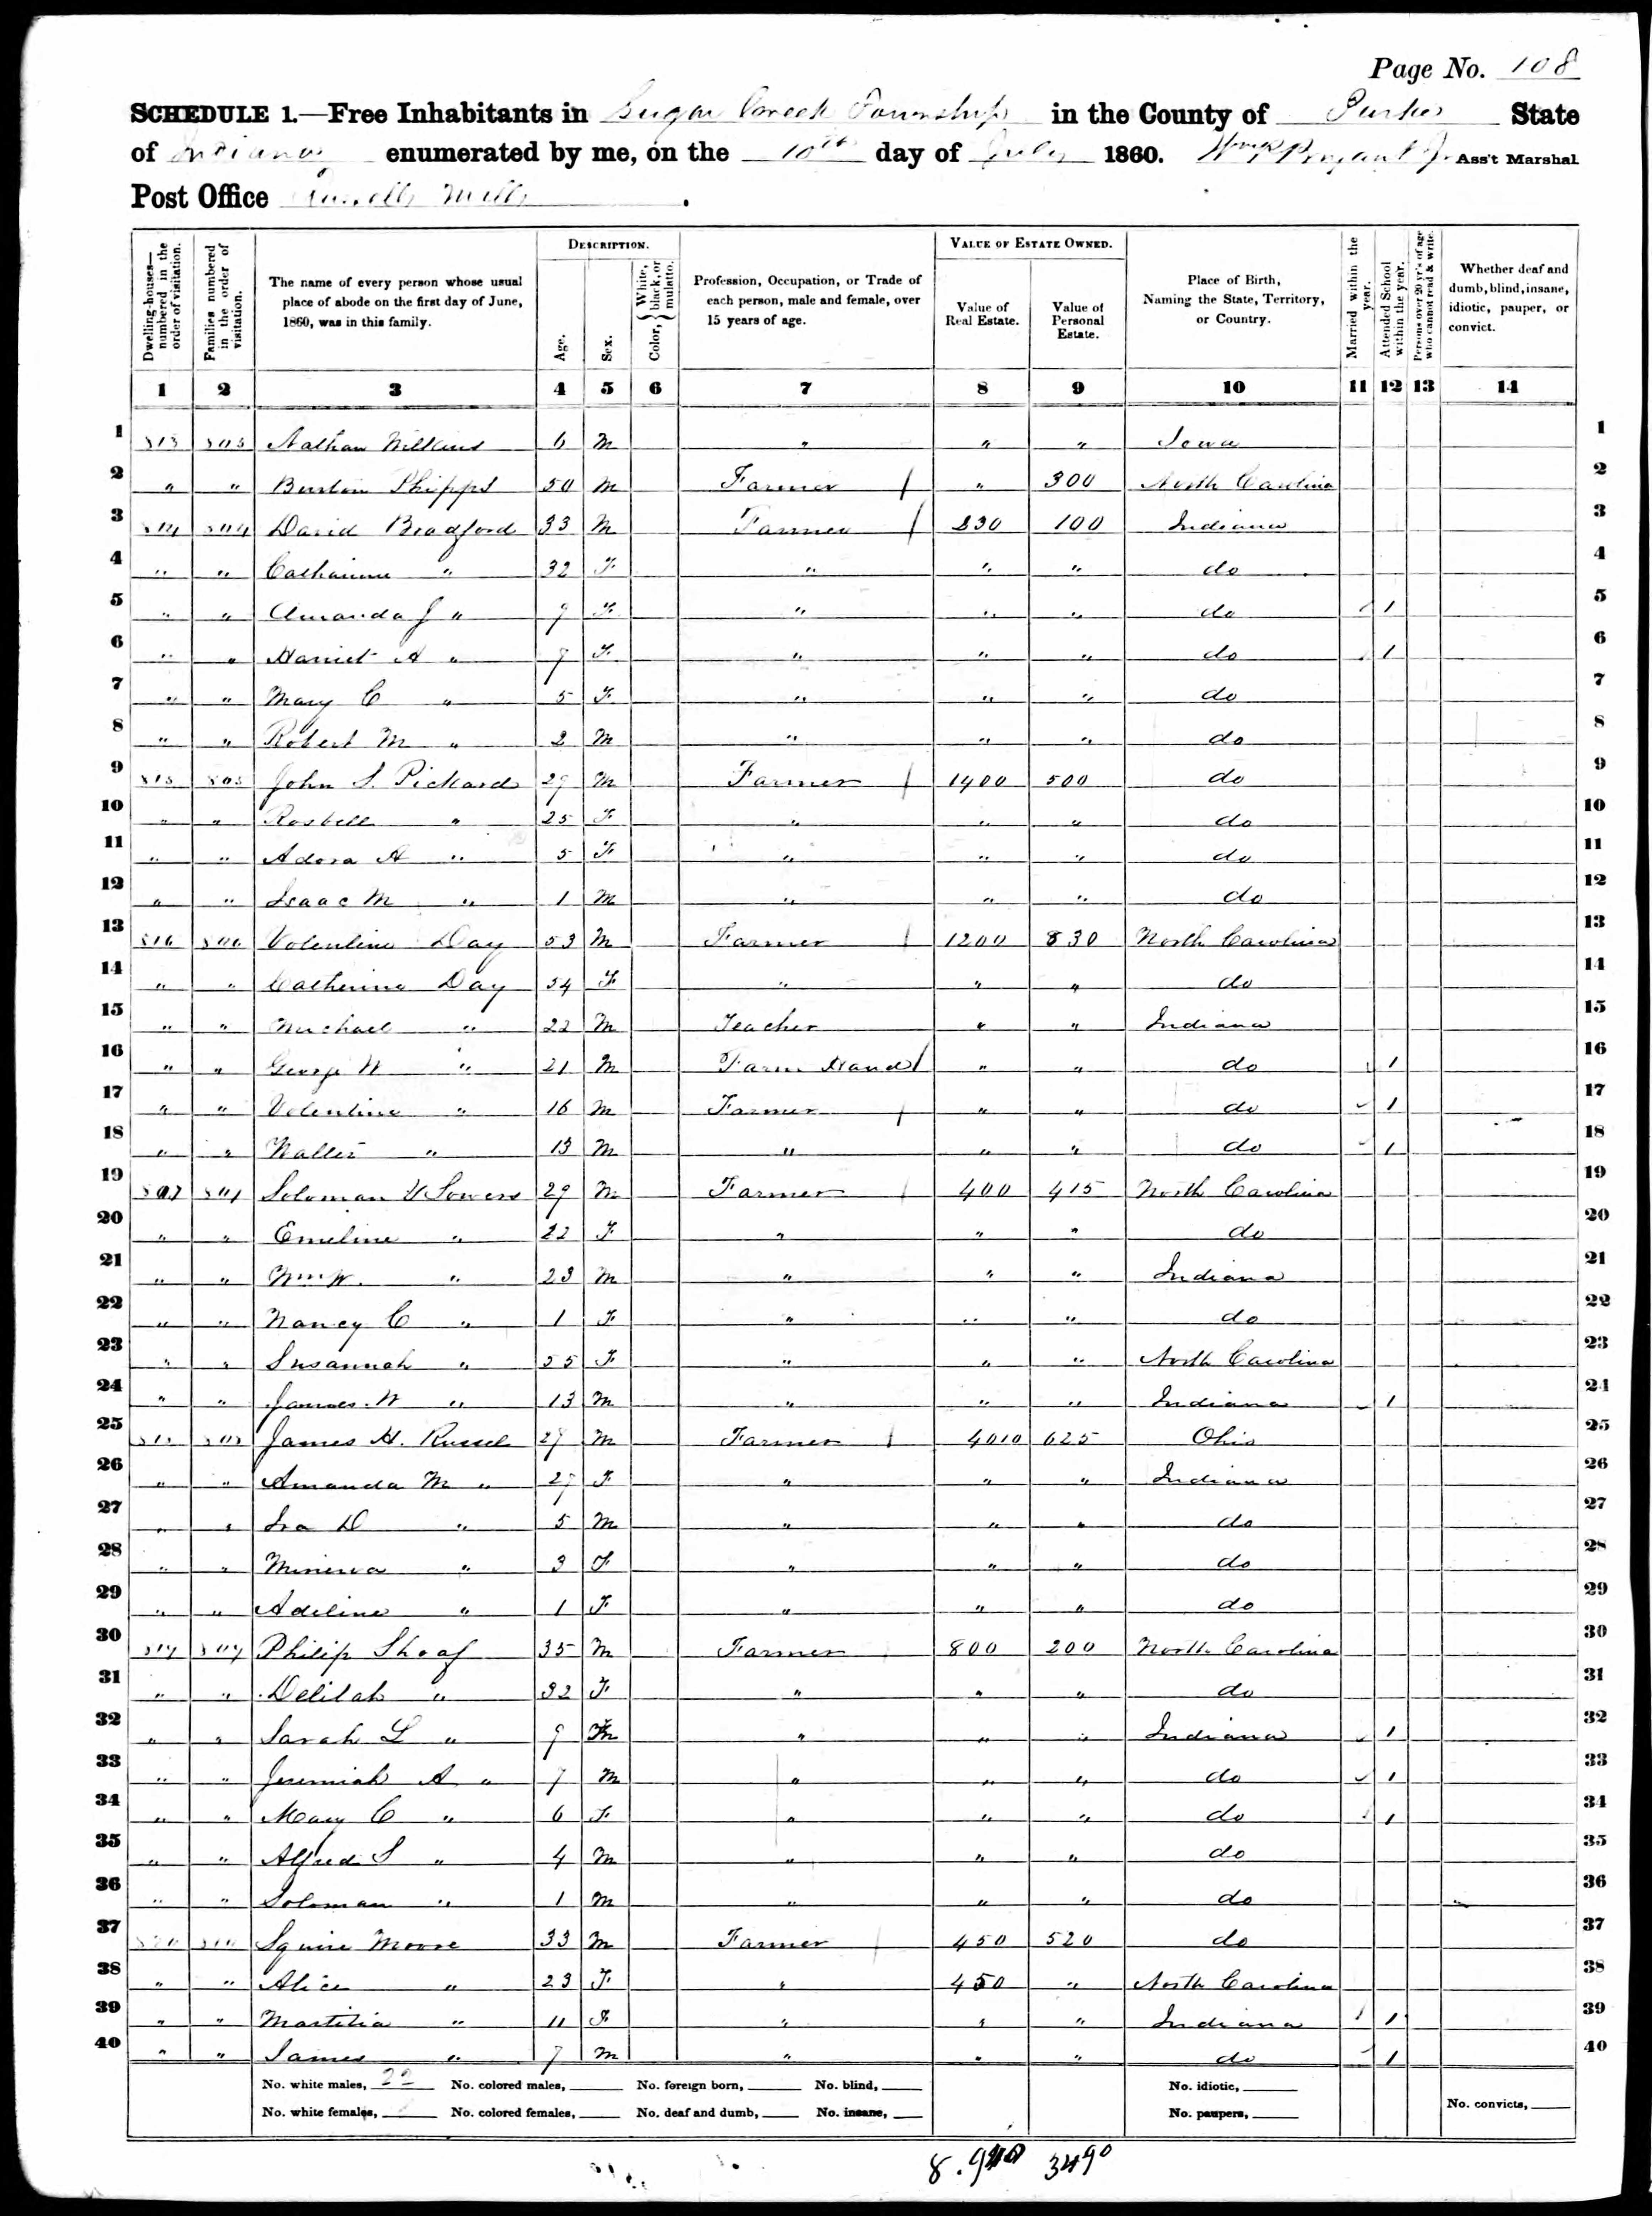 Page No. 108
SCHEDULE 1.—Free Inhabitants in Sugar Creek Township in the County of Parke State
of Indiana enumerated by me, on the 10th day of July 1860. Ass't Marshal
Post Office Russells Mills.
Dwelling-houses—numbered in the order of visitation.
Families numbered in the order of visitation.
The name of every person whose usual place of abode on the first day of June, 1860, was in this family.
DESCRIPTION.
Age.
Sex.
Color, { White, black, or mulatto.
Profession, Occupation, or Trade of each person, male and female, over 15 years of age.
VALUE OF ESTATE OWNED.
Value of Real Estate.
Value of Personal Estate.
Place of Birth, Naming the State, Territory, or Country.
Married within the year.
Attended School within the year.
Persons over 20 yr's of age who cannot read & write.
Whether deaf and dumb, blind, insane, idiotic, pauper, or convict.
1 2 3 4 5 6 7 8 9 10 11 12 13 14
1 Nathan Wilkins 6 M " " " Iowa 1
2 " " Burton Phipps 50 M Farmer / " 300 North Carolina 2
3 814 804 David Bradford 33 M Farmer / 100 Indiana 3
4 " " Catharine " 32 F " " " do 4
5 " " Amanda J " 9 F " " " do 1 5
6 " " Harriet A " 7 F " " " do 1 6
7 " " Mary C " 5 F " " " do 7
8 " " Robert M " 2 M " " " do 8
9 815 805 John S. Pickard 29 M Farmer / 1400 500 do 9
10 " " Rosbell " 25 F " " " do 10
11 " " Adora A " 5 F " " " do 11
12 " " Isaac M " 1 M " " " do 12
13 816 806 Volentine Day 53 M Farmer / 1200 830 North Carolina 13
14 " " Catherine Day 54 F " " " do 14
15 " " Michael " 22 M Teacher " " Indiana 15
16 " " George W " 21 M Farm Hand / " " do 1 16
17 " " Volentine " 16 M Farmer / " " do 1 17
18 " " Walter " 13 M " " " do 1 18
19 Soloman W Sowers 29 M Farmer / 400 415 North Carolina 19
20 " " Emeline " 22 F " " " do 20
21 " " Wm W. " 23 M " " " Indiana 21
22 " " Nancy C " 1 F " " " do 22
23 " " Susannah " 55 F " " " North Carolina 23
24 " " James W " 13 M " " " Indiana 1 24
25 818 808 James H. Russel 29 M Farmer / 4010 625 Ohio 25
26 " " Amanda M " 29 F " " " Indiana 26
27 " " Ira D " 5 M " " " do 27
28 " " Minerva " 3 F " " " do 28
29 " " Adeline " 1 F " " " do 29
30 819 809 Philip Shoaf 35 M Farmer 800 200 North Carolina 30
31 " " Delilah " 32 F " " " do 31
32 " " Sarah L " 9 F " " " Indiana 1 32
33 " " Jeremiah A " 7 M " " " do 1 33
34 " " Mary C " 6 F " " " do 1 34
35 " " Alfred S " 4 M " " " do 35
36 " " Soloman " 1 M " " " do 36
37 820 810 Squire Moore 33 M Farmer / 450 520 do 37
38 " " Alice " 23 F " 450 " North Carolina 38
39 " " Martitia " 11 F " " " Indiana 1 39
40 " " James " 7 M " " " do 1 40
No. white males, 22 No. colored males, No. foreign born, No. blind, No. idiotic,
No. white females, No. colored females, No. deaf and dumb, No. insane, No. paupers, No. convicts,
8.940 3490